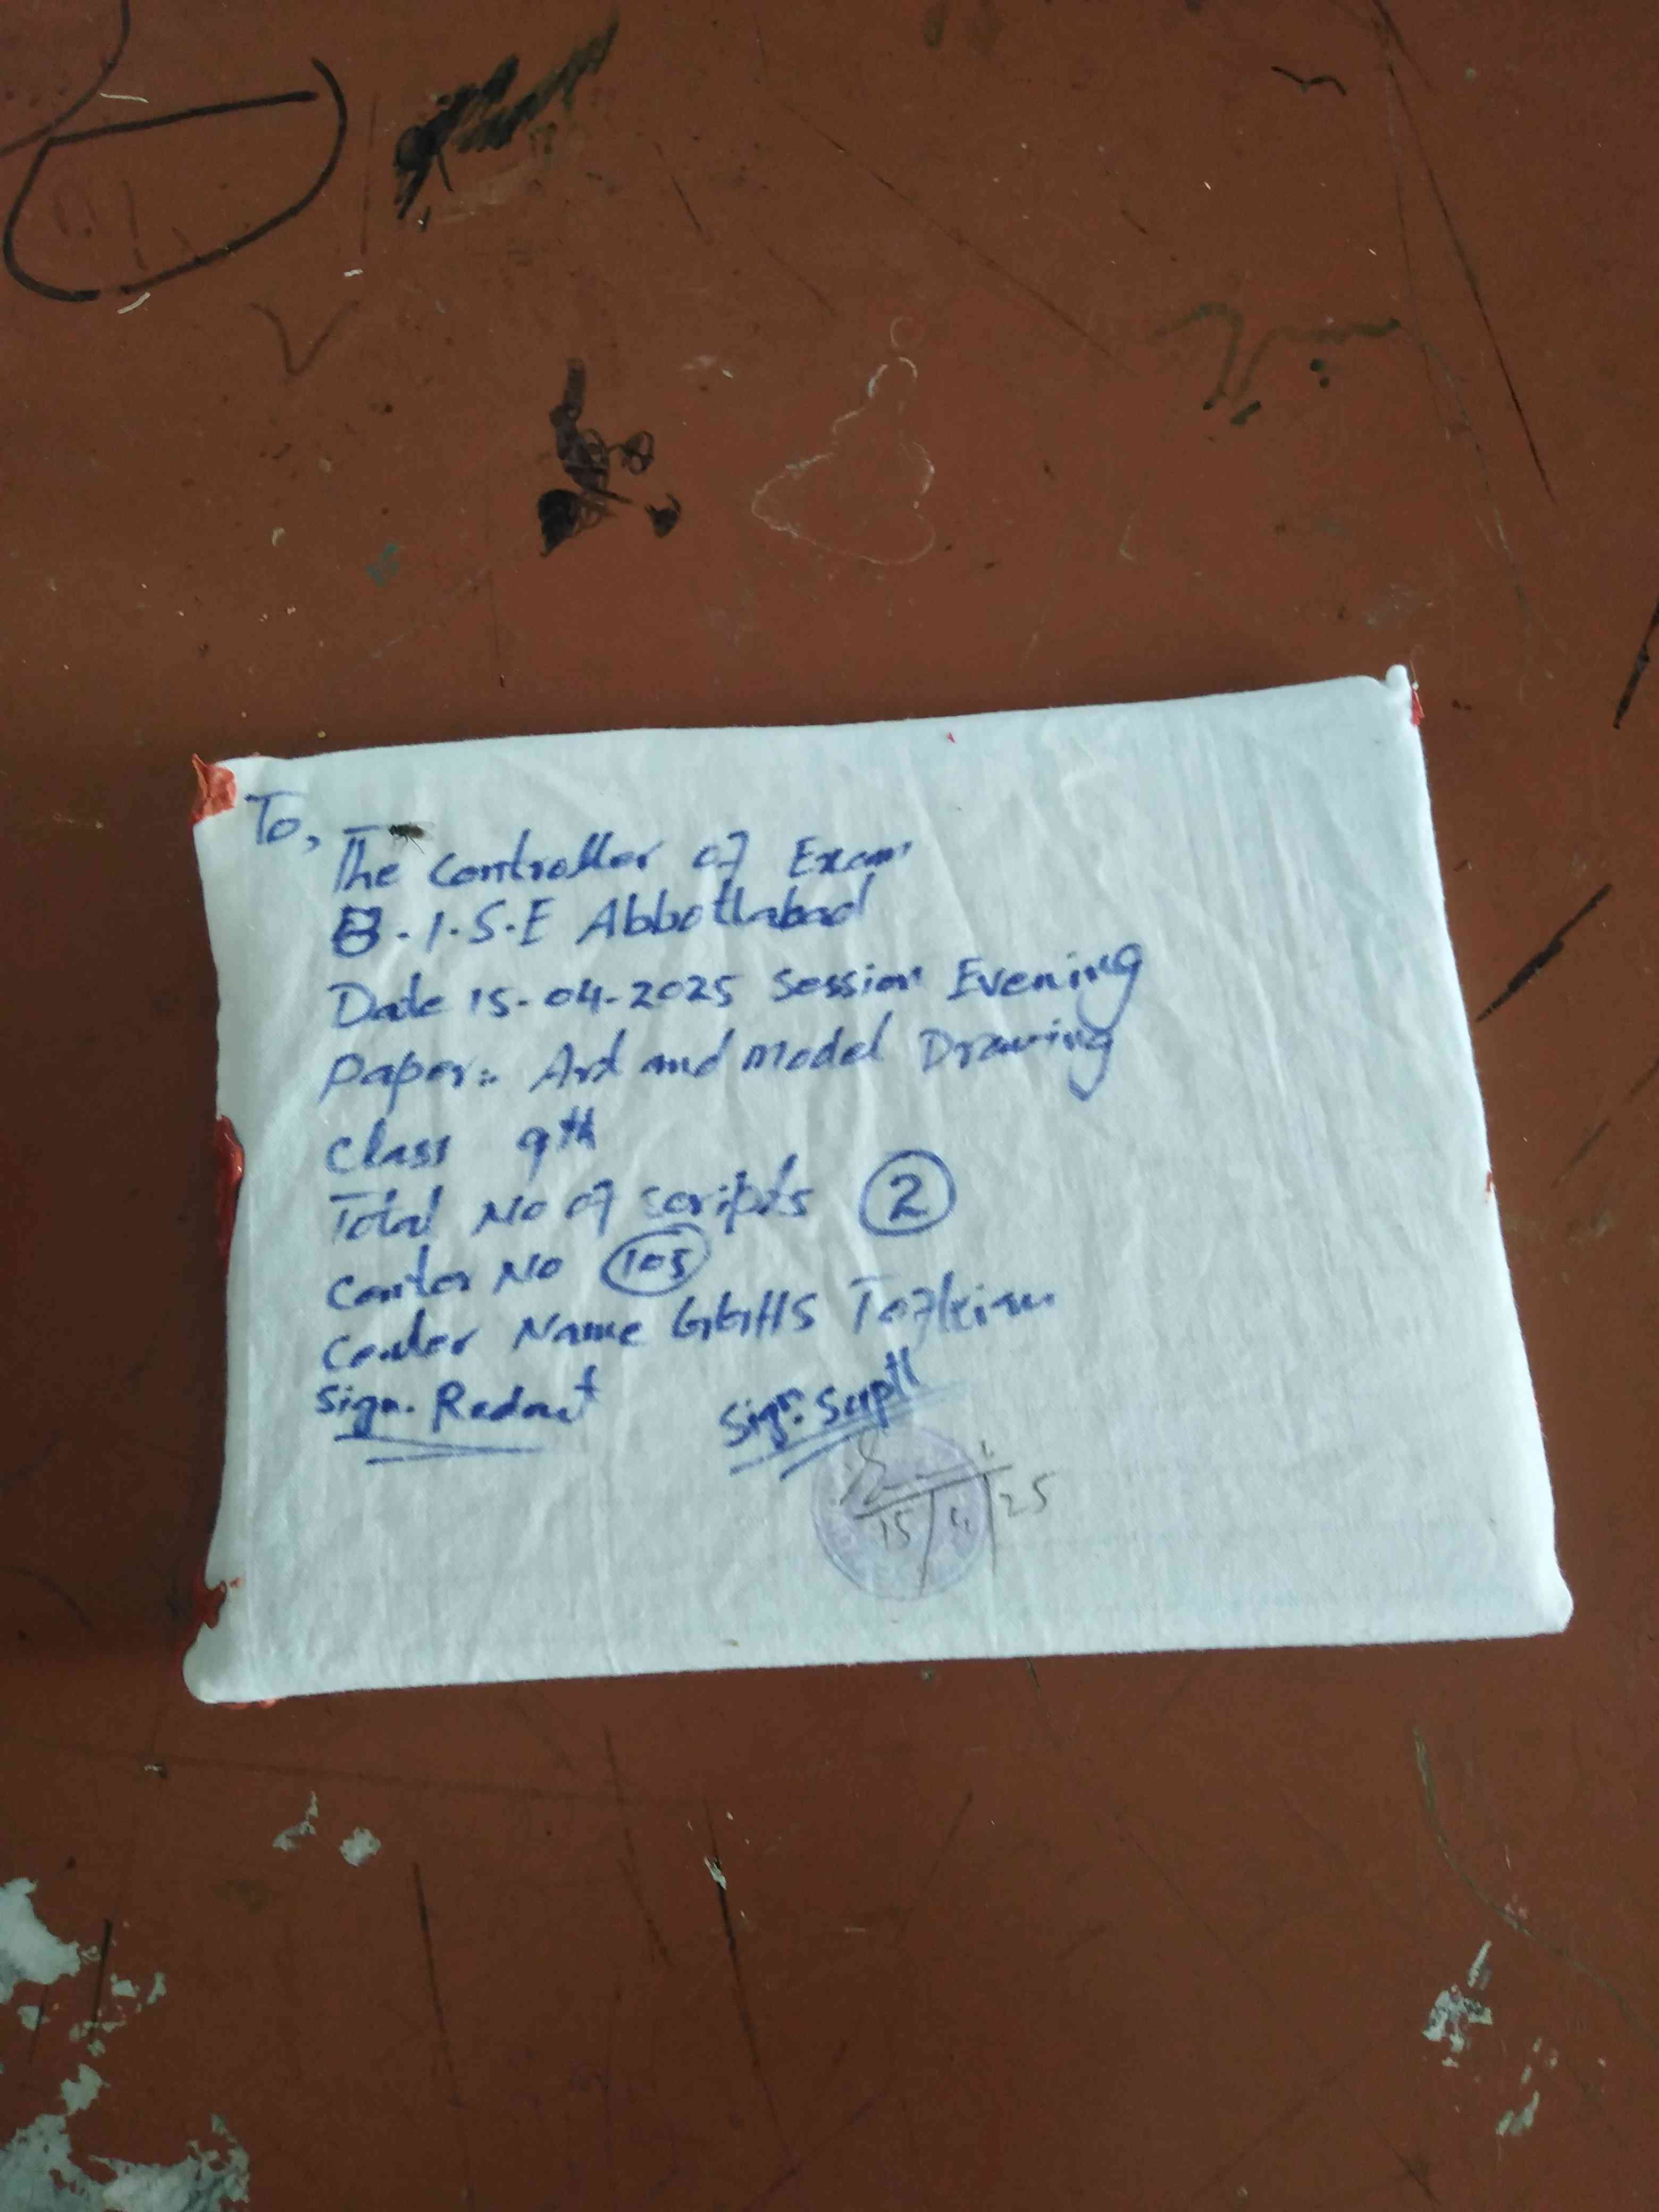 To,
The Controller of Exam
B.I.S.E Abbottabad
Date 15-04-2025 Session Evening
Paper:- Art and Model Drawing
Class 9th
Total No of Scripts 2
Center No 105
Center Name GGHS
Sign. Sign: Supdtt
15/4/25